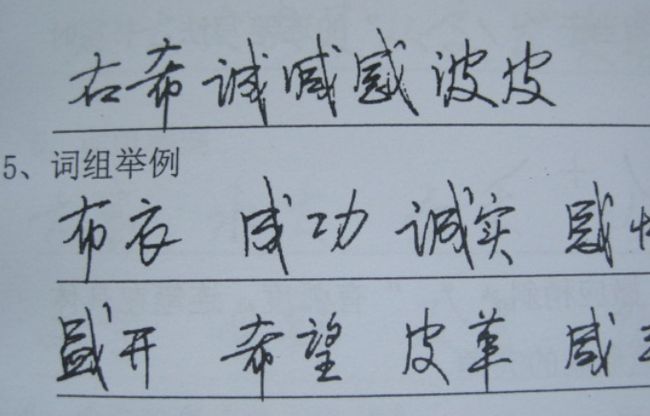 右希诚喊感波皮
5、词组举例
布衣 成功 诚实 感
盛开 希望 皮革 咸